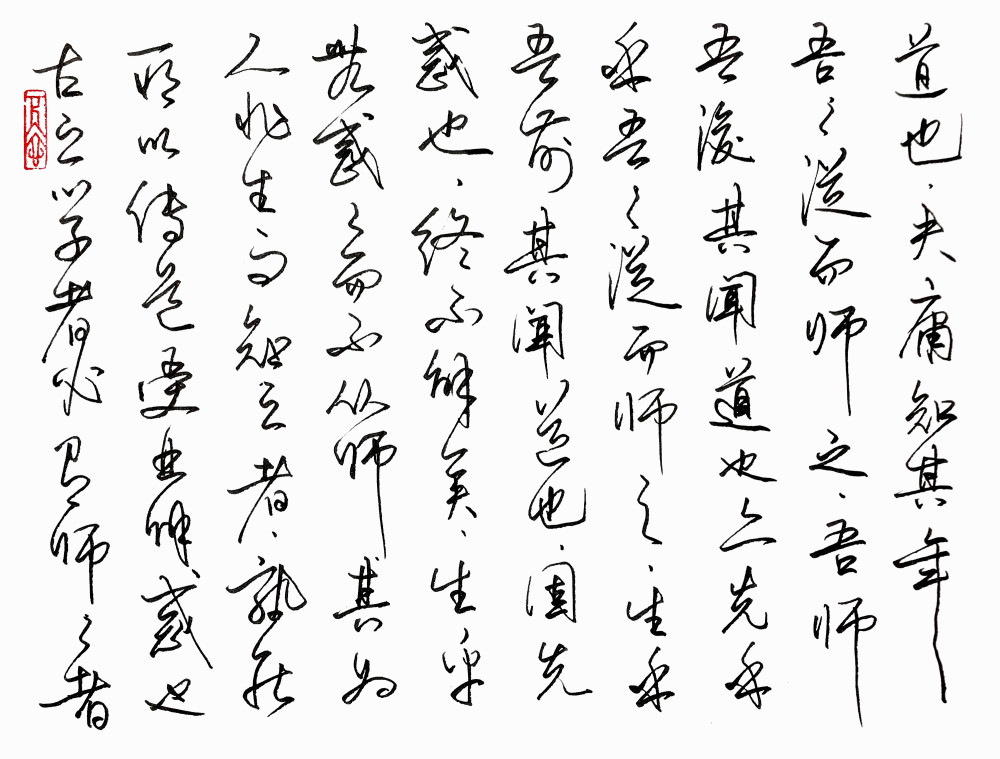 古之学者必有师々者
所以传道受业解惑也
人非生而知之者、孰能
無惑々而不从师其为
惑也、终不解矣、生乎
吾前其闻道也、固先
乎吾々從而师之、生乎
吾後其闻道也亦先乎
吾々從而师之、吾师
道也、夫庸知其年